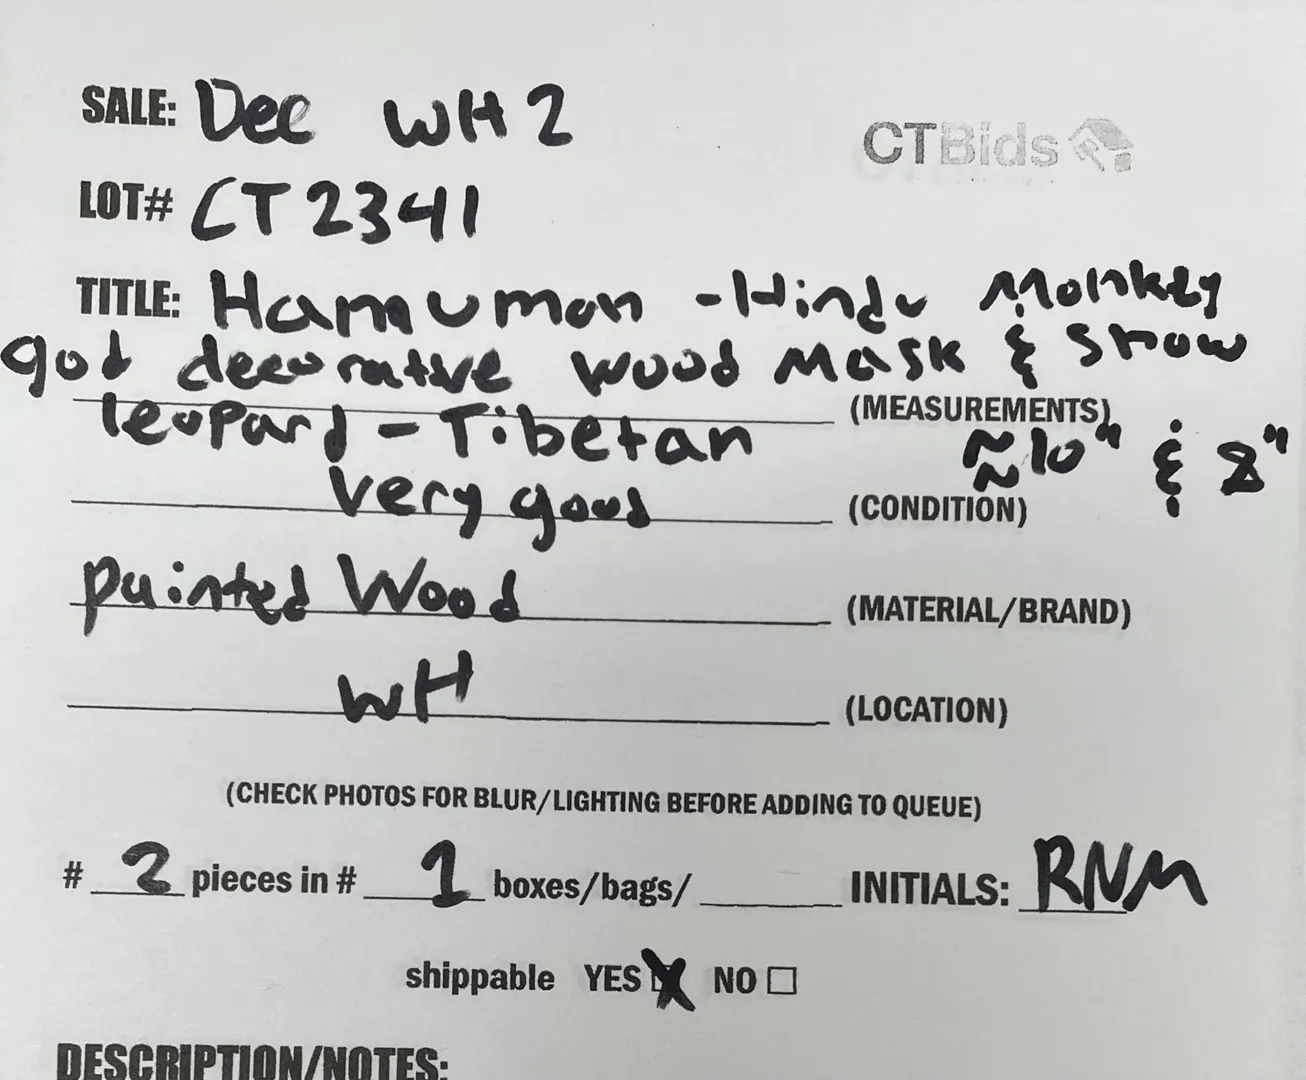 SALE: Dec WH2
CTBids
LOT# CT2341
TITLE: Hamumon - Hindu Monkey
god decorative wood Mask & Snow
(MEASUREMENTS)
leopard - Tibetan ≈10" & 8"
very good (CONDITION)
painted Wood (MATERIAL/BRAND)
WH (LOCATION)
(CHECK PHOTOS FOR BLUR/LIGHTING BEFORE ADDING TO QUEUE)
# 2 pieces in # 1 boxes/bags/ INITIALS: RNM
shippable YES NO
DESCRIPTION/NOTES: